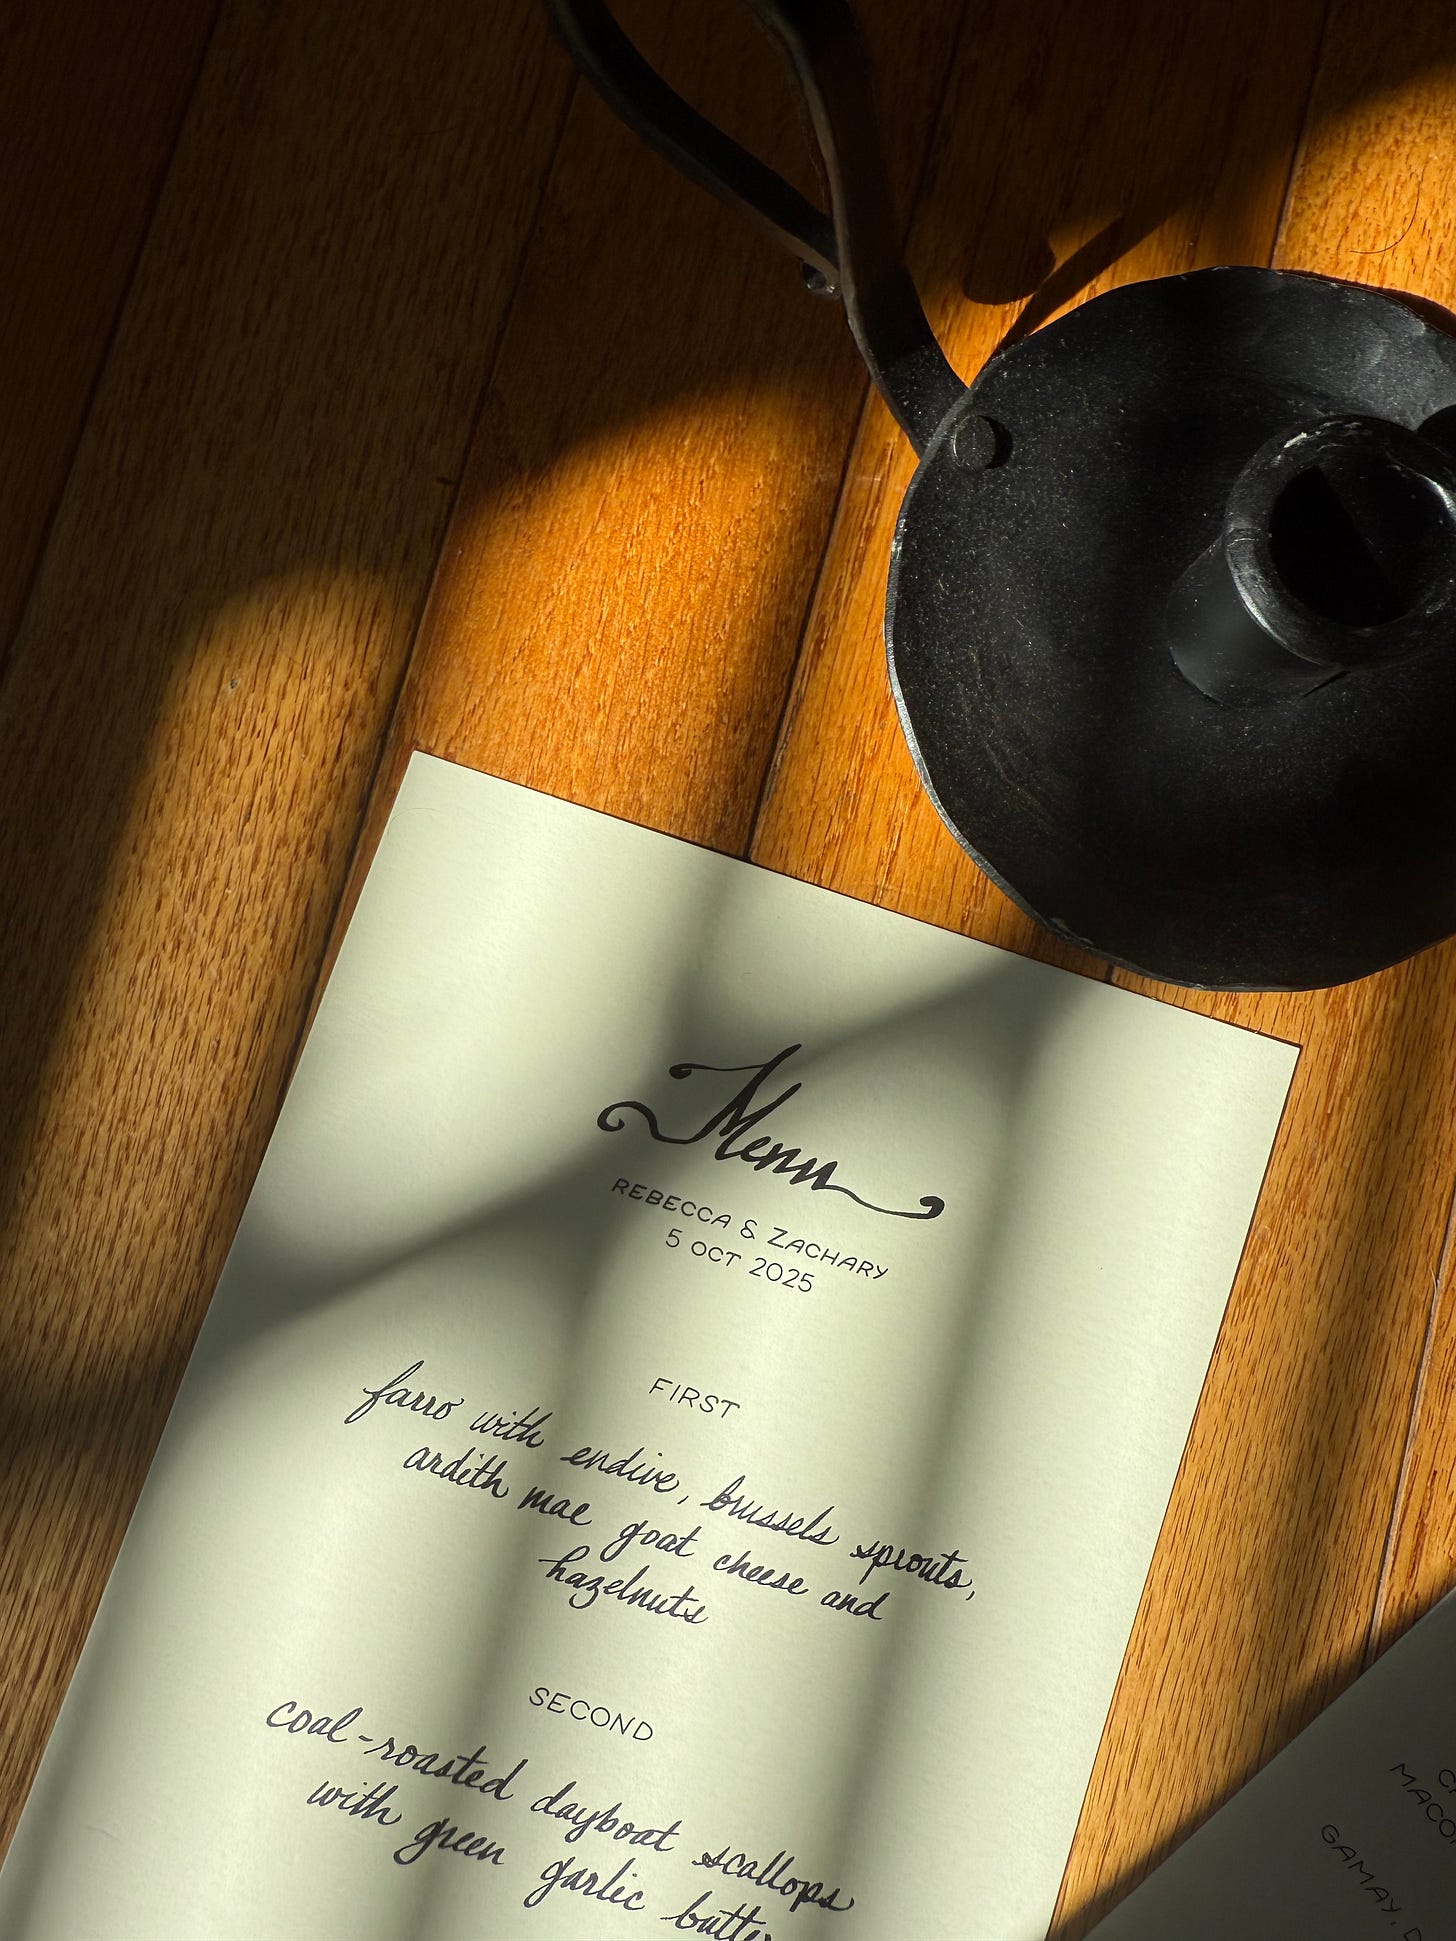 Menu
REBECCA & ZACHARY
5 OCT 2025
FIRST
farro with endive, brussels sprouts,
ardith mae goat cheese and
hazelnuts
SECOND
coal-roasted dayboat scallops
with green garlic
GAMAY,